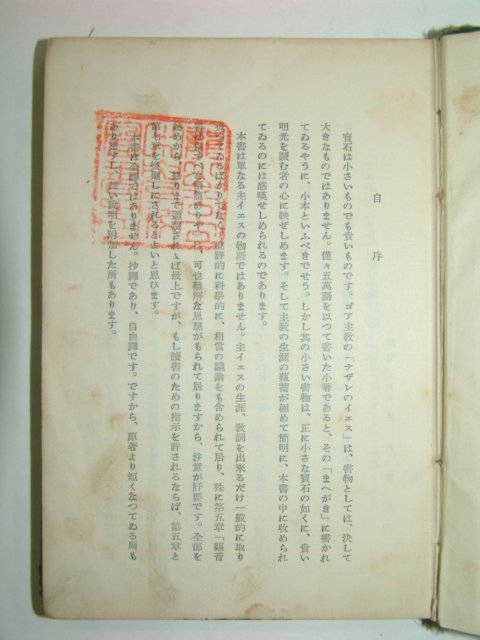 自序
寳石は小さいものでも貴いものです。ゴア主教の「ナザレのイエス」は、書物としては、決して
大きなものではありません。僅々五萬語を以つて書いた小著であると、その「まへがき」に書かれ
てゐるやうに、小本といふべきでせう。しかし其の小さい書物は、正に小さな寳石の如くに、貴い
明光を讀む者の心に映ぜしめます。そして主教の生涯の蘊蓄が極めて簡明に、本書の中に收められ
てゐるのには感嘆せしめられるのであります。
本書は單なる主イエスの物語ではありません。主イエスの生涯、教訓を出來るだけ一般的に取り
てゐるばかりでなく、批評的に科學的に、相當の議論をも含められて居り、殊に第五章「福音
可也難解な思想がもられて居りますから、注意が肝要です。全部を
始めから終りまで通讀されゝば最上ですが、もし讀書のための指示を許されるならば、第五章と
第七章を後廻しにされるとよいと思ひます。
本書は全譯ではありません。抄譯であり、自由譯です。ですから、原著より短くなつてゐる所も
ありますし、説明を附加した所もあります。